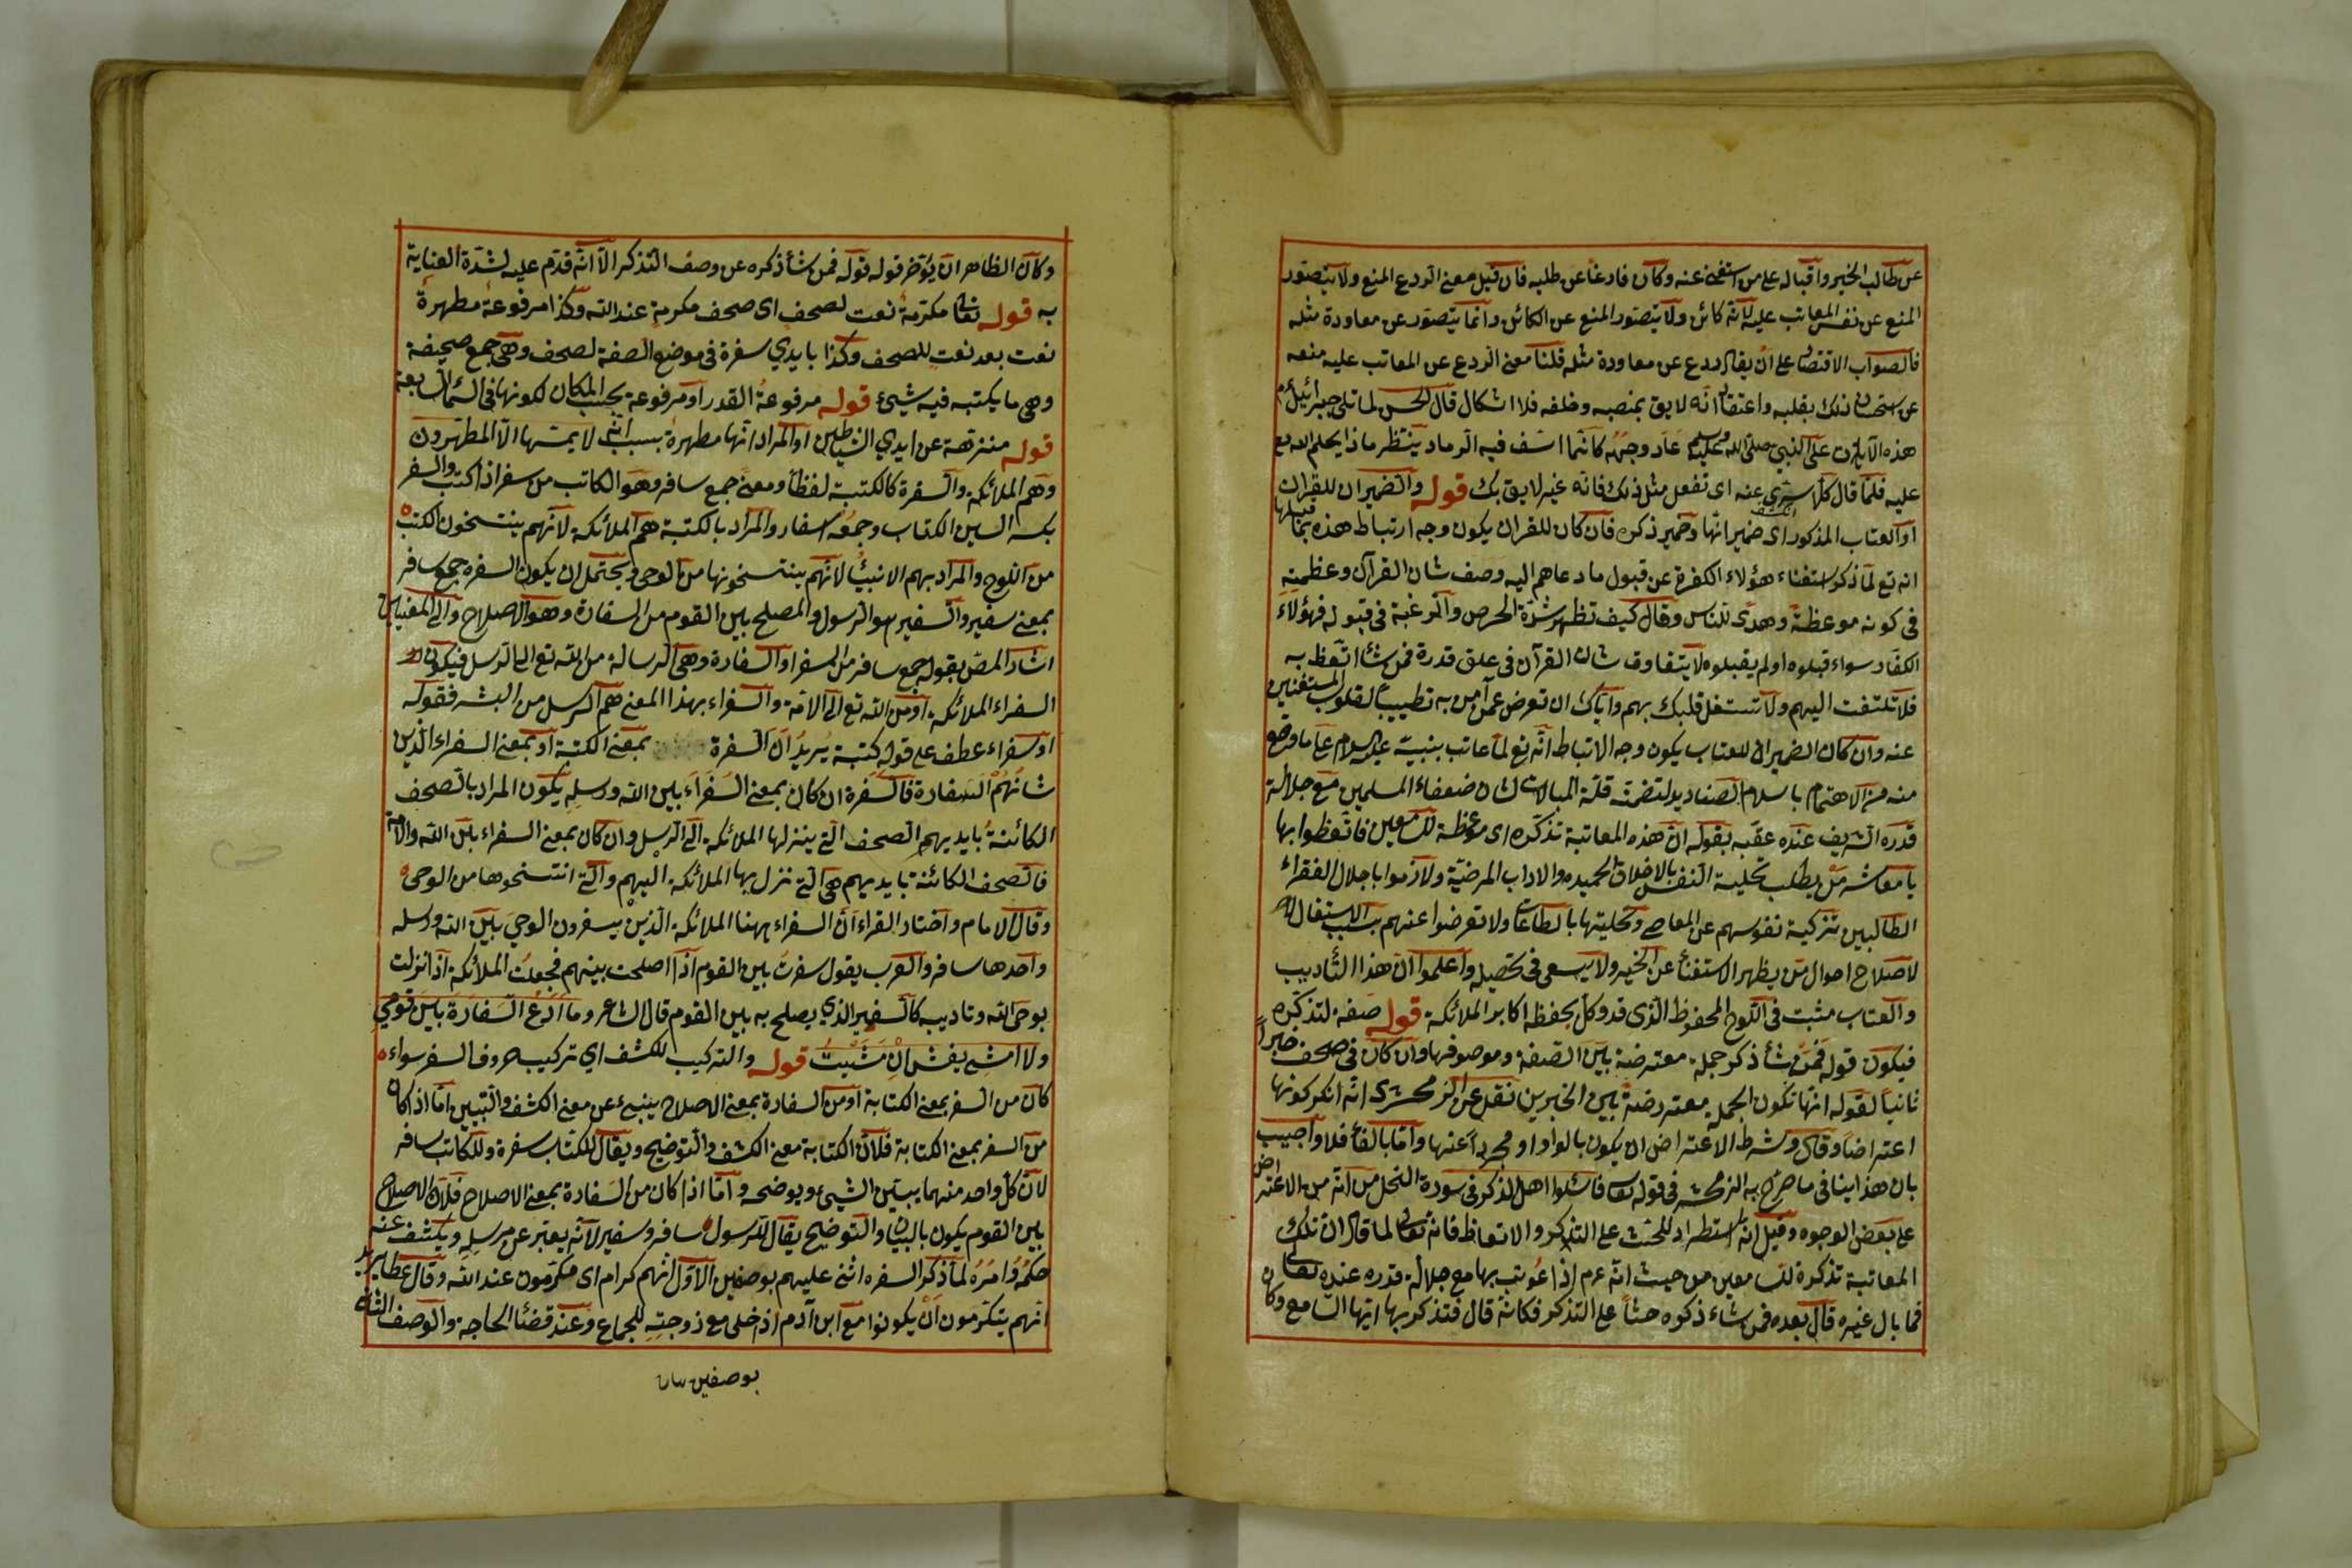 عن طالب الخير واقباله على من استغنى عنه وكان فارغا عن طلبه فان قيل معنى الردع المنع ولا يتصور
المنع عن نفس المعاتب عليه لانه كائن ولا يتصور المنع عن الكائن وانما يتصور عن معاودة مثله
فالصواب الاقتصار على ان يقال ردع عن معاودة مثله قلنا معنى الردع عن المعاتب عليه منعه
عن استحسان ذلك بقلبه واعتقاد انه لايق بمنصبه وخلقه فلا اشكال قال الحسن لما تلى جبرائيل
هذه الآيات على النبي صلى الله عليه وسلم عاد وجهه كانما اسف فيه الرماد ينتظر ماذا يحكم الله تع
عليه فلما قال كلا سري عنه اى تفعل مثل ذلك فانه غير لايق بك قوله والضميران للقران
او العتاب المذكور اى ضمير انها وضمير ذكره فان كان للقران يكون وجه ارتباط هذه بما قبلها
انه تع لما ذكر استغناء هؤلاء الكفرة عن قبول ما دعاهم اليه وصف شان القرآن وعظمته
فى كونه موعظة وهدى للناس وقال كيف تظهر شدة الحرص والرغبة فى قبوله فهؤلاء
الكفار سواء قبلوه او لم يقبلوه لا يتفاوت شان القرآن فى علو قدرة فمن شاء اتعظ به
فلا تلتفت اليهم ولا تشتغل قلبك بهم واياك ان تعرض عمن آمن به تطييبا لقلوب المستغنين
عنه وان كان الضميران للعتاب يكون وجه الارتباط انه تع لما عاتب بنبيه عليه السلام على ما وقع
منه من الاهتمام باسلام الصناديد لتضمنه قلة المبالات لشان ضعفاء المسلمين مع جلالة
قدره الشريف عنده عقبه بقوله ان هذه المعاتبة تذكره اى موعظة للسامعين فاتعظوا بها
يا معاشر من يطلب تحلية النفس بالاخلاق الحميده والاداب المرضية ولازموا باجلال الفقراء
الطالبين تزكية نفوسهم عن المعاصى وتحليتها بالطاعات ولا تعرضوا عنهم بسبب الاشتغال
لاصلاح احوال من يظهر الاستغناء عن الخير ولا يسعى فى تحصيله واعلموا ان هذا التأديب
والعتاب مثبت فى اللوح المحفوظ الذى قد وكل بحفظه اكابر الملائكة قوله صفة لتذكره
فيكون قوله فمن شاء ذكر جملة معترضة بين الصفة وموصوفها وان كان فى صحف خبرا
ثانيا لقوله انها تكون الجملة معترضة بين الخبرين نقل عن الزمخشرى انه انكر كونها
اعتراضا وقال وشرط الاعتراض ان يكون بالواو او مجردا عنها واما بالفاء فلا واجيب
بان هذا ينافى ما صرح به الزمخشرى فى قوله تعالى فاسئلوا اهل الذكر فى سورة النحل من انه من الاعتراض
على بعض الوجوه وقيل انه استطراد للحث على التذكر والاتعاظ فانه تعالى لما قال ان تلك
المعاتبة تذكرة للسامعين من حيث انه عم اذا عوتب بها مع جلالة قدره عنده تعالى
فما بال غيره قال بعده فمن شاء ذكره حثا على التذكر فكانه قال فتذكر بها ايها السامع وكان
وكان الظاهر ان يؤخر قوله قوله فمن شاء ذكره عن وصف التذكر الا انه قدم عليه لشدة العناية
به قوله تعالى مكرمة نعت لصحف اى صحف مكرمة عند الله وكذا مرفوعة مطهرة
نعت بعد نعت للصحف وكذا بايدي سفرة فى موضع الصفة لصحف وهى جمع صحيفة
وهى ما يكتب فيه شيئ قوله مرفوعة القدر او مرفوعة بحسب المكان لكونها فى السماء السابعة
قوله منزهة عن ايدي الشياطين او المراد انها مطهرة بسبب انه لا يمسها الا المطهرون
وهم الملائكة والسفرة كالكتبة لفظا ومعنى جمع سافر وهو الكاتب من سفر اذا كتب والسفر
بكسر السين الكتاب وجمعه اسفار والمراد بالكتبة هم الملائكة لانهم ينتسخون الكتب
من اللوح والمراد بهم الانبياء لانهم ينتسخونها من الوحى ويحتمل ان يكون السفره جمع سافر
بمعنى سفير والسفير هو الرسول والمصلح بين القوم من السفارة وهو الاصلاح والى المعنيين
اشار المص بقوله جمع سافر من السفر او السفارة وهى الرسالة من الله تع الى الرسل فيكون
السفراء الملائكة او من الله تع الى الامة والسفراء بهذا المعنى هم الرسل من البشر فقوله
او سفراء عطف على قوله كتبة يريد ان السفرة بمعنى الكتبة او بمعنى السفراء الذين
شانهم السفارة فالسفرة ان كان بمعنى السفراء بين الله ورسله يكون المراد بالصحف
الكائنة بايديهم الصحف التى ينزلها الملائكة الى الرسل وان كان بمعنى السفراء بين الله والامة
فالصحف الكائنة بايديهم هى التى نزل بها الملائكة اليهم والتى انتسخوها من الوحى
وقال الامام واختار الفراء ان السفراء ههنا الملائكة الذين يسفرون الوحي بين الله ورسله
واحدها سافر والعرب يقول سفرت بين القوم اذا اصلحت بينهم فجعلت الملائكة اذا نزلت
بوحى الله وتاديبه كالسفير الذي يصلح به بين القوم قال الشاعر وما ادع السفارة بين قومي
ولا امشي بغش ان مشيت قوله والتركيب للكشف اي تركيب حروف السفر سواء
كان من السفر بمعنى الكتابة او من السفارة بمعنى الاصلاح ينبىء عن معنى الكشف والتبيين اما اذا كان
من السفر بمعنى الكتابة فلان الكتابة معنى الكشف والتوضيح ويقال للكتاب سفرة وللكاتب سافر
لان كل واحد منهما يبين الشيئ ويوضحه واما اذا كان من السفارة بمعنى الاصلاح فلان الاصلاح
بين القوم يكون بالبيان والتوضيح يقال للرسول سافر وسفير لانه يعتبر عن مرسله ويكشف عنه
حكمه وامره لما ذكر السفره اثنى عليهم بوصفين الاول انهم كرام اى مكرمون عند الله وقال عطا يريد
انهم يتكرمون ان يكونوا مع ابن آدم اذ اخلى مع زوجته للجماع وعند قضاء الحاجة والوصف الثانى
بوصفين